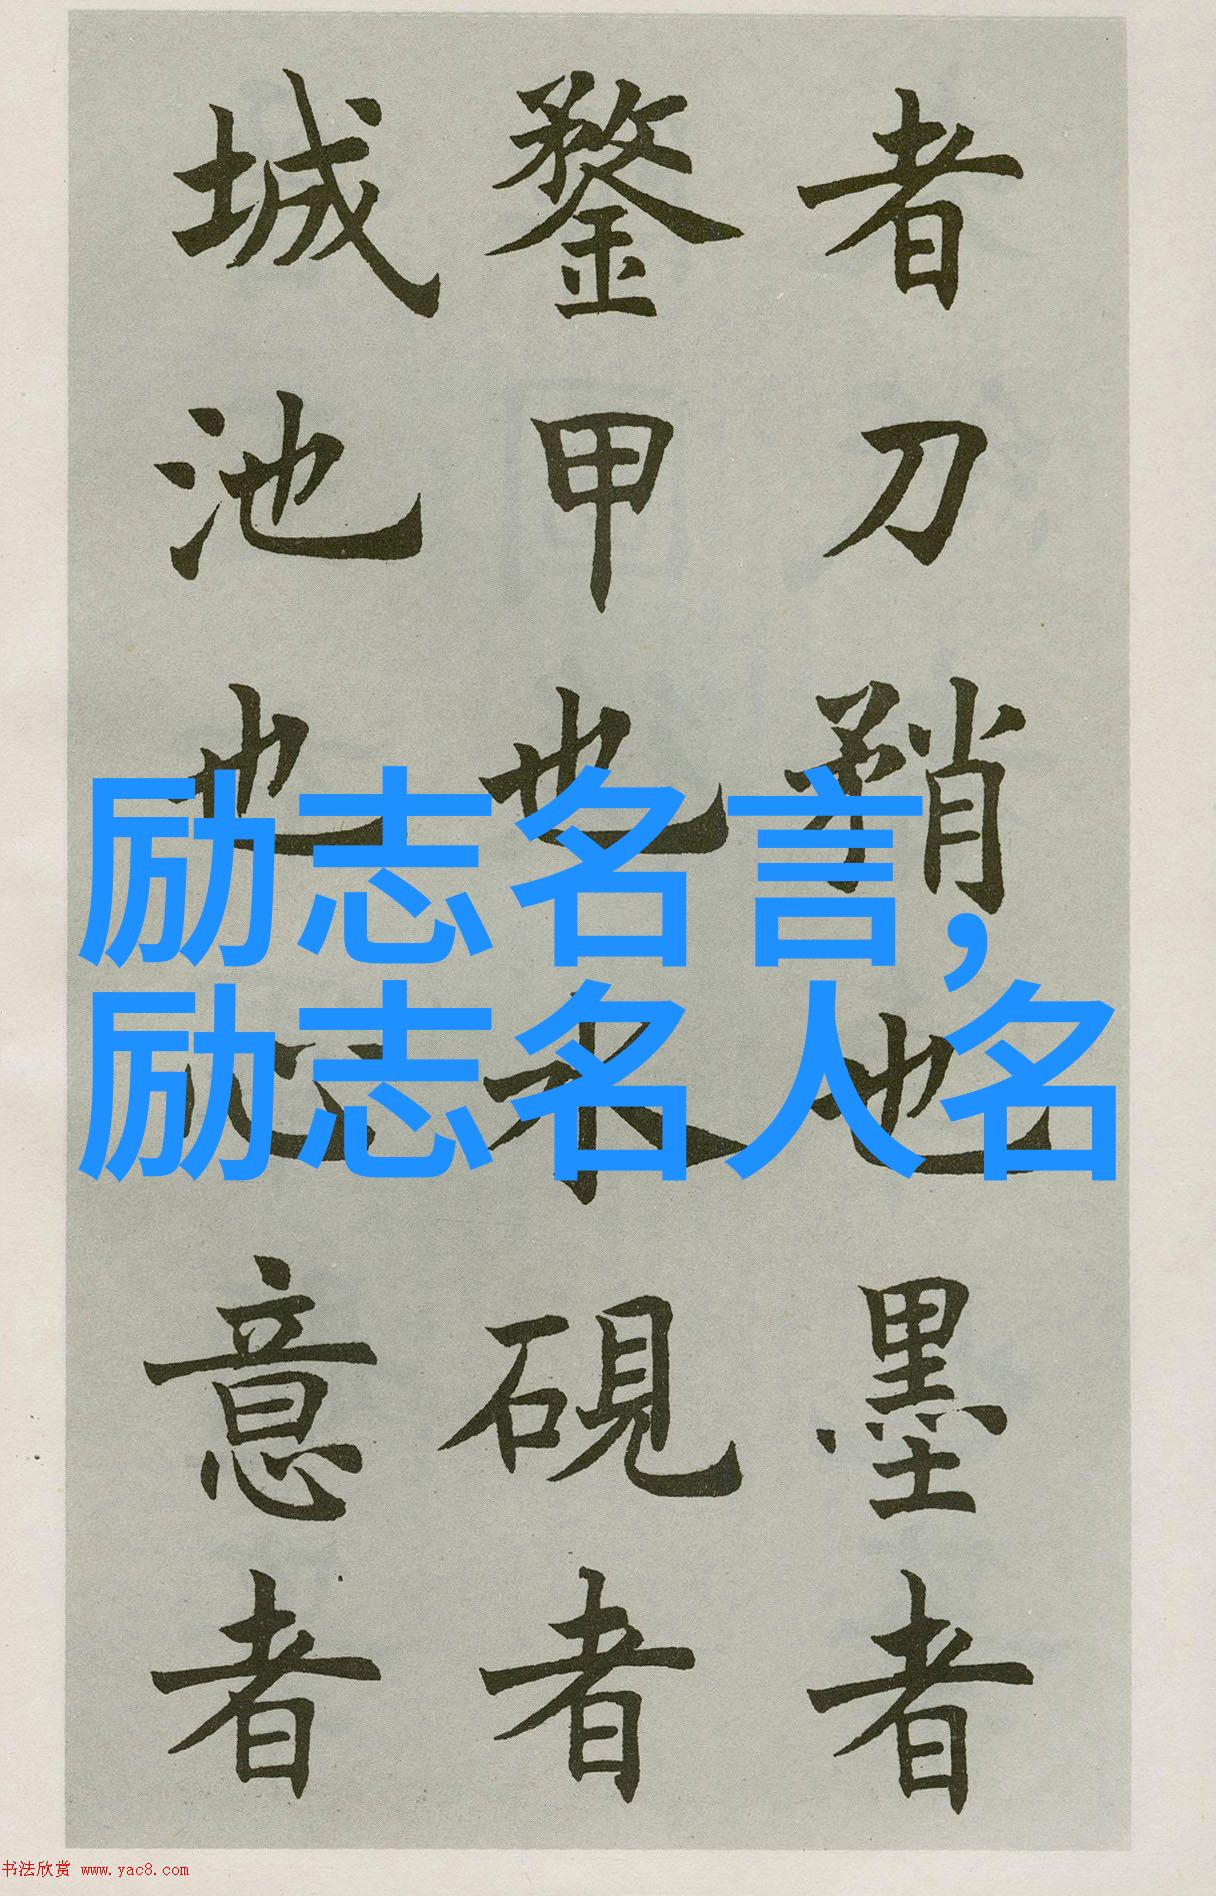 者刀矟也墨者
鍪甲也水硯者
城池也心意者
励志名言,
励志名人名
书法欣赏 www.yac8.com